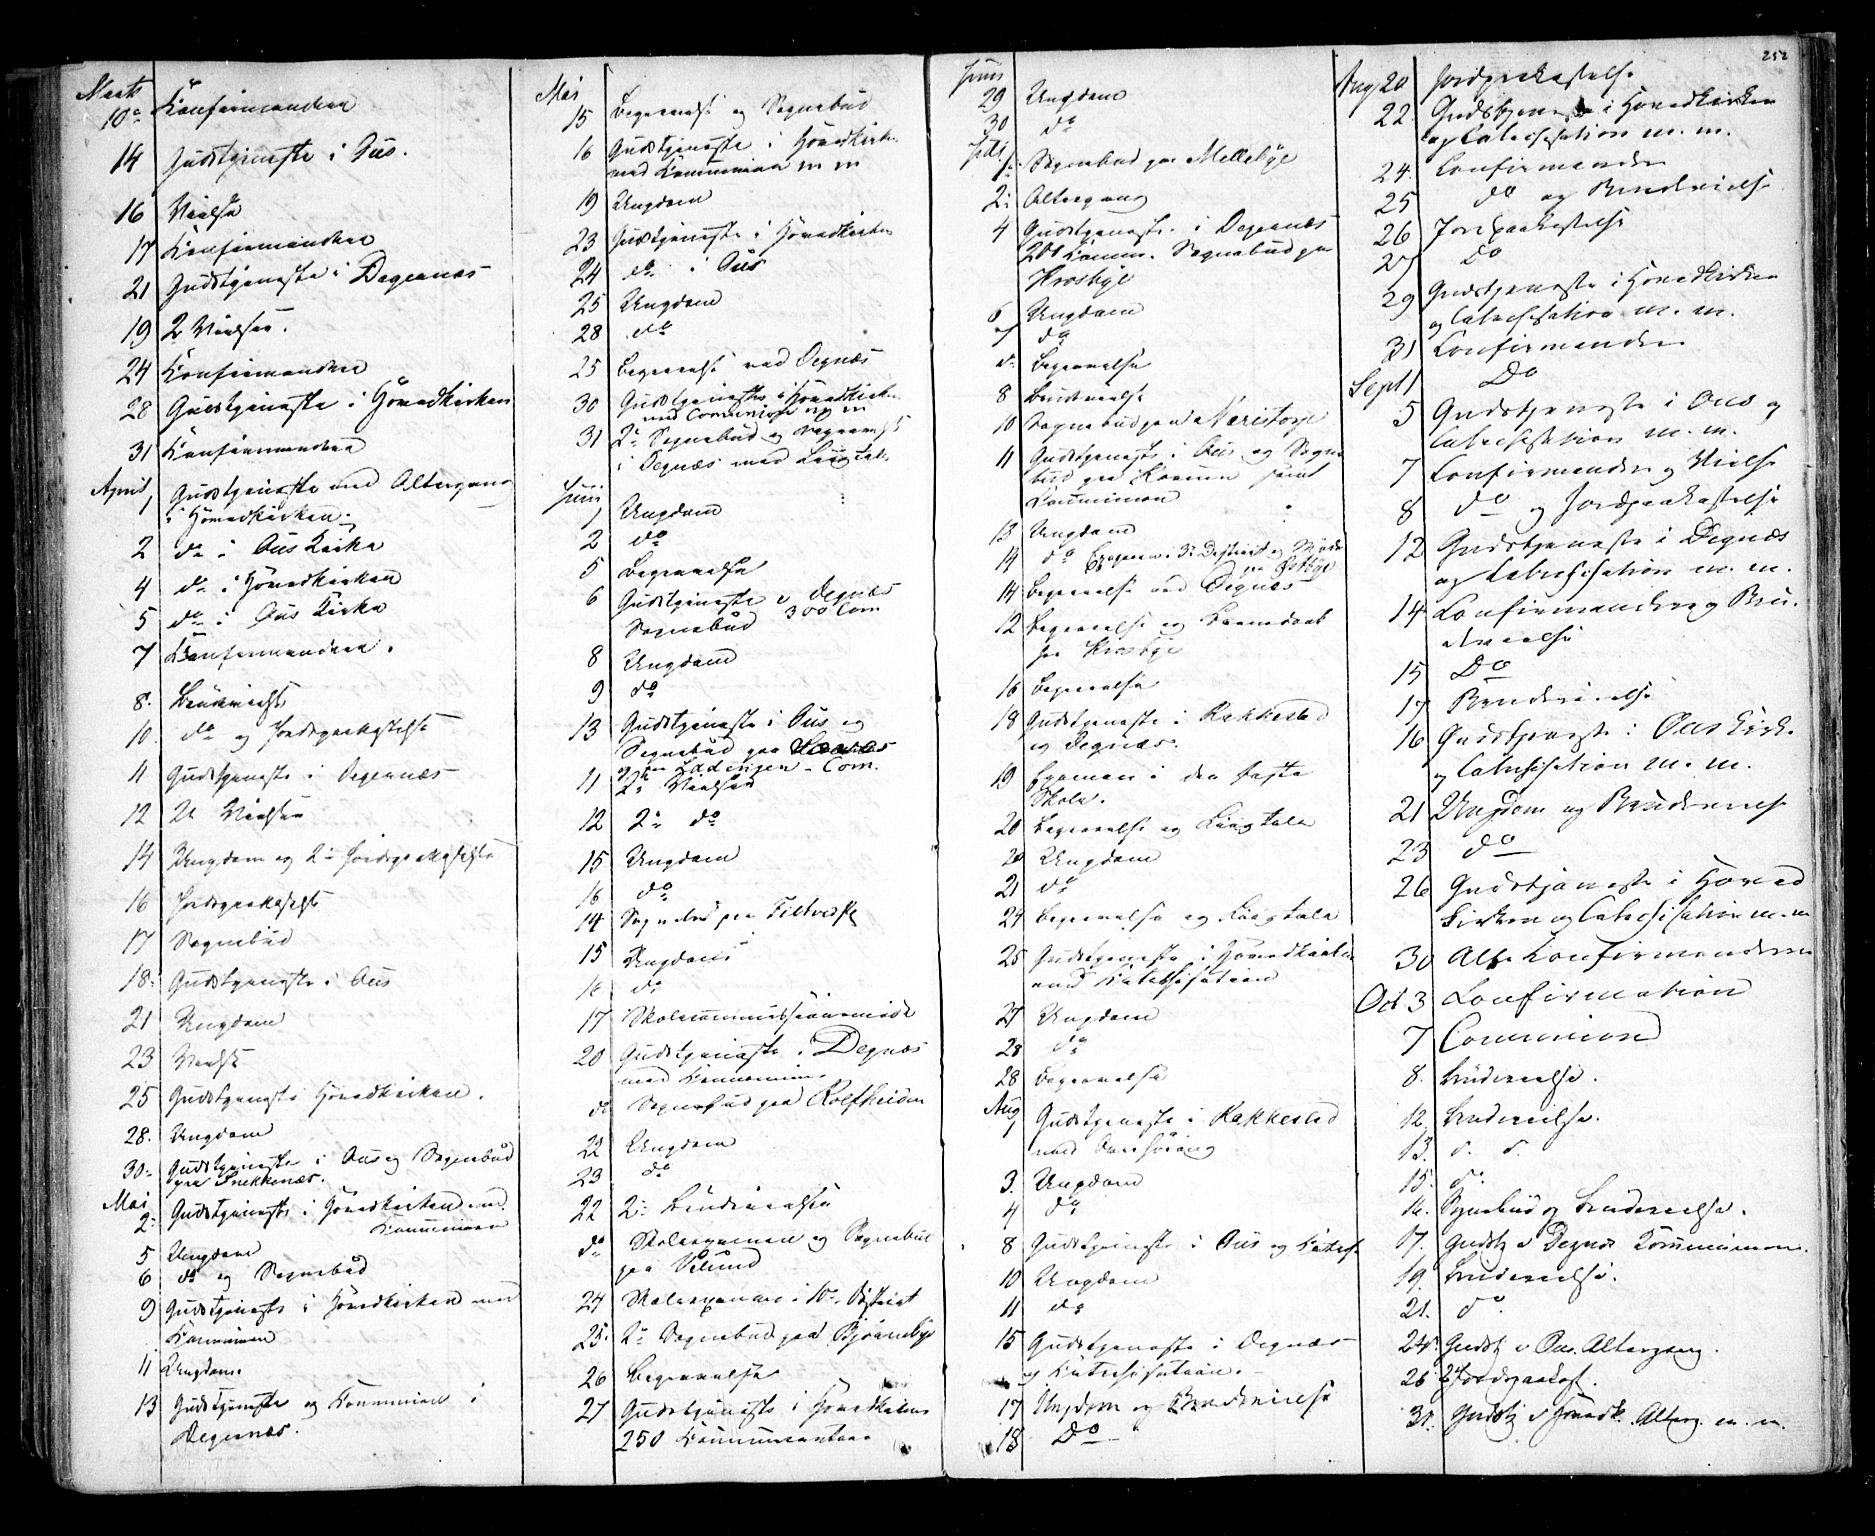 252
Marts
10de Konfirmander
14 Gudstjeneste i Øus.
16 Vielse
17 Konfirmander
21 Gudstjeneste i Degernæs
19 2 Vielser.
24 Konfirmander
28 Gudstjeneste i Hovedkirken
31 Konfirmander
April
1 Gudstjeneste med Altergang
i Hovedkirken.
2 do i Øus Kirke
4 do i Hovedkirken
5 do i Øus Kirke
7 Konfirmander.
8. Brudevielse
10 do og Jordpaakastelse
11 Gudstjeneste i Degernæs
12 2 Vielser
14 Ungdom og 2 Jordpaakastelse
16 Jordpaakastelse
17 Sognebud
18. Gudstjeneste i Øus
21 Ungdom
23 Vielse
25 Gudstjeneste Hovedkirken.
28. Ungdom
30 Gudstjeneste i Øus og Sognebud
paa Snekkenæs.
Mai
2 Gudstjeneste i Hovedkirken med
Kommunion
5 Ungdom
6 do og Sognebud
9 Gudstjeneste i Hovedkirken med
Kommunion
11 Ungdom.
13 Gudstjeneste og Kommunion i
Degernæs.
Mai
15 Begravelse og Sognebud
16 Gudstjeneste i Hovedkirken
med Kommunion m m
19 Ungdom
23 Gudstjeneste i Hovedkirken
24 do i Øus
25 Ungdom
28 do
25 Begravelse ved Degnæs
30 Gudstjeneste i Hovedkirken
med Communion m m
31 2 Sognebud og Begravelse
i Degnæs med Liigtale
Juni
1 Ungdom
2 do
5 Begravelse
6 Gudstjeneste i Degnæs
Sognebud 300 Com
8 Ungdom
9 do
13 Gudstjeneste i Øus og
Sognebud paa
og Com.
11 2 Vielser
12 2 do
15 Ungdom
16 do
14 Sognebud paa
15 Ungdom
16 do
17 Skolecommissionsmøde
20 Gudstjeneste i Degnæs
med Kommunion
do Sognebud paa Rolfheiden
22 Ungdom
23 do
22 2 Brudevielse
do Skoleexamen og Sognebud
paa
24 Skoleexamen i 10de District
25. 2 Sognebud paa Bjørnebye
26 Begravelse
27 Gudstjeneste i Hovedkirken
250 Kommunicantere
Juni
29 Ungdom
30 do
Juli
1. Sognebud paa Mellebye
2. Altergang
4 Gudstjeneste i Degernæs
201 Komm. Sognebud paa
Krosbye
6 Ungdom
7 do
do Begravelse
8 Brudevielse
10 Sognebud paa Næristorp
11 Gudstjeneste i Øus og Sogne
bud paa samt
Communion
13 Ungdom
14 do Examen i 3 District og
paa Østbye
14 Begravelse ved Degnæs
12 Begravelse og
paa Krosbye
16 Begravelse
18 Gudstjeneste i Rakkestad
og Degnæs.
19 Examen i den faste
Skole.
20 Begravelse og Liigtale
20 Ungdom
21 do
24 Begravelse og Liigtale
25 Gudstjeneste i Hovedkirken
med Katechisation
27 Ungdom
28 do
28 Begravelse
Aug
1 Gudstjeneste i Rakkestad
med
3. Ungdom
4 do
8 Gudstjeneste i Øus og Katech
10 Ungdom
11 do
15 Gudstjeneste i Degnæs
og Katechisation.
17 Ungdom og Brudevielse
18 Do
Aug 20 Jordpaakastelse
22 Gudstjeneste i Hovedkirken
og Catechisation m. m.
24. Confirmander
25 do og Brudevielse
26 Jordpaakastelse
27 Do
29 Gudstjeneste i Hovedkirken
og Catechisation m. m.
31 Confirmander
Sept 1 Do
5 Gudstjeneste i Øus og
Catechisation m. m.
7 Confirmander og Vielse
8 do og Jordpaakastelse
12 Gudstjeneste i Degnæs
og Catechisation m. m.
14 Confirmander og Bru-
devielse
15 Do
17 Brudevielse
16 Gudstjeneste i Øus Kirke
og Catechisation m. m.
21 Ungdom og Brudevielse
23 do
26 Gudstjeneste i Hoved
kirken og Catechisation m. m
30 Alle Confirmanderne
Oct 3 Confirmation
7 Communion
8. Brudevielse.
12. Brudevielse.
13. d. d.
15. do
16. Sognebud og Brudevielse.
17. Gudstj i Degnæs Kommunion.
19. Brudevielse.
21. do.
24. Gudstj i Øus. Altergang.
26 2 Jordpaakast.
31. Gudstj i Hovedk. Alterg. m. m.